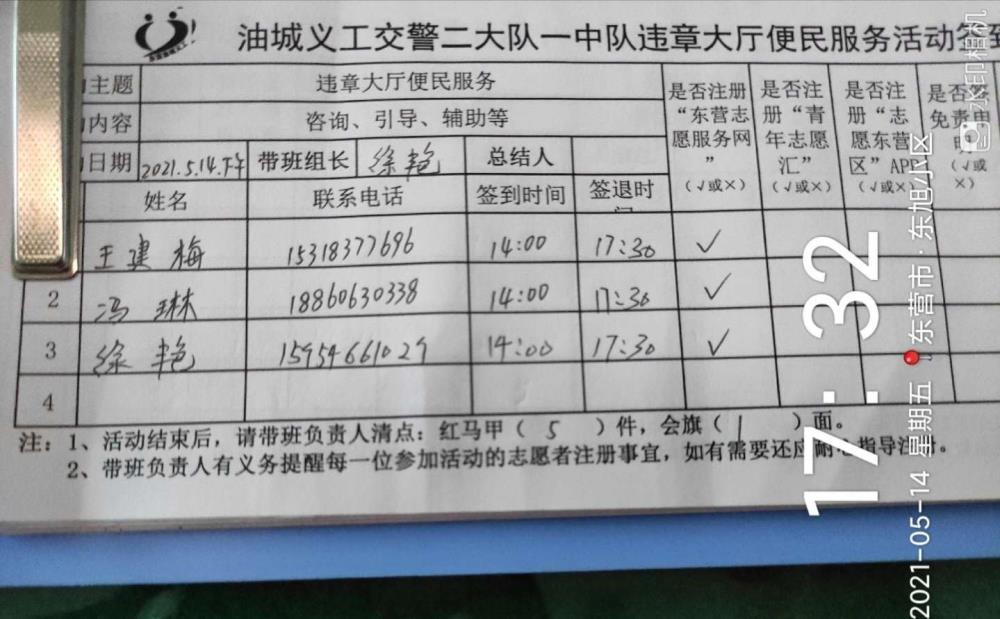 油城义工交警二大队一中队违章大厅便民服务活动签到
主题 违章大厅便民服务 是否注册“东营志愿服务网” (√或×) 是否注册“青年志愿汇” (√或×) 是否注册“志愿东营区”APP (√或×) 是否签免责 (√或×)
内容 咨询、引导、辅助等
日期 2021.5.14.下午 带班组长 徐艳 总结人
姓名 联系电话 签到时间 签退时
王建梅 15318377696 14:00 17:30 √
2 冯琳 18860630338 14:00 17:30 √
3 徐艳 15954661029 14:00 17:30 √
4
注：1、活动结束后，请带班负责人清点：红马甲（ 5 ）件，会旗（ 1 ）面。
2、带班负责人有义务提醒每一位参加活动的志愿者注册事宜，如有需要还应耐心指导注册。
水印相机
17:32
2021-05-14 星期五 东营市·东旭小区